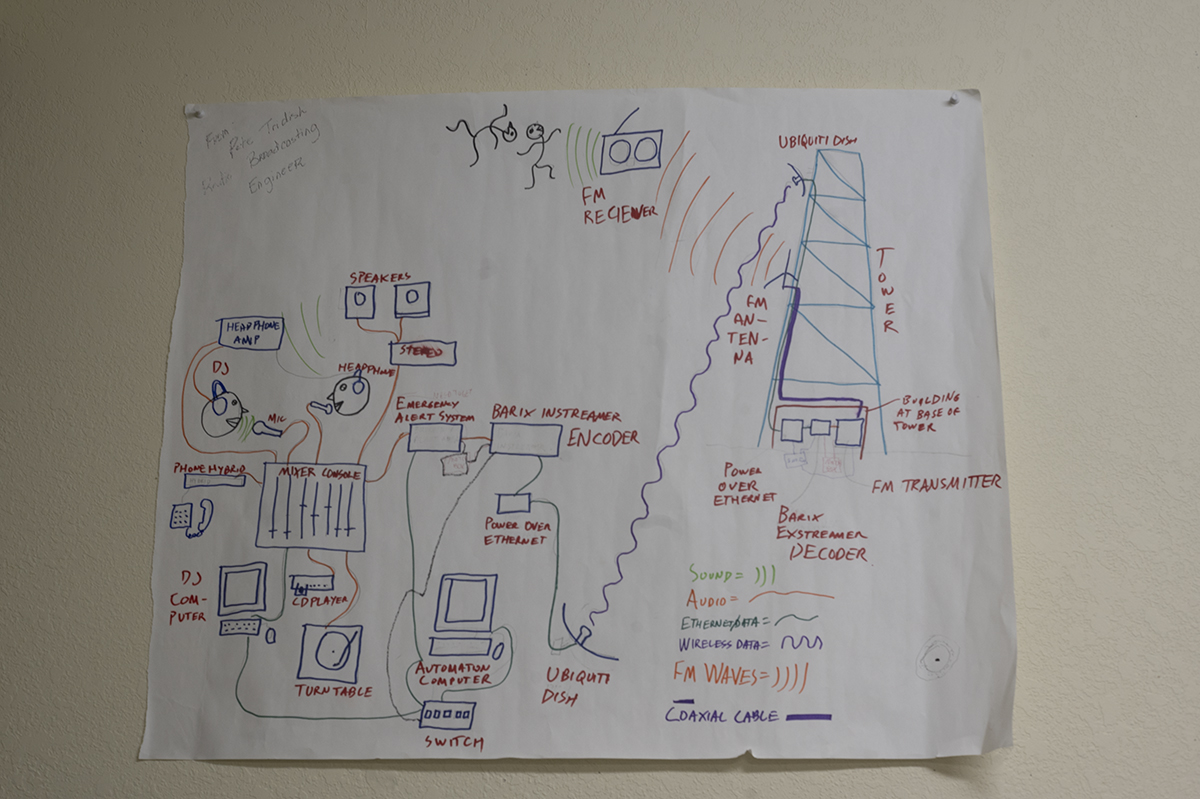 From
Pete Tridish
Broadcasting
Engineer
UBIQUITI DISH
FM
RECIEVER
TOWER
FM
AN-
TEN-
NA
SPEAKERS
STEREO
HEADPHONE
AMP
DJ
HEADPHONE
MIC
EMERGENCY
ALERT SYSTEM
BARIX INSTREAMER
ENCODER
BUILDING
AT BASE OF
TOWER
PHONE HYBRID
MIXER CONSOLE
POWER OVER
ETHERNET
POWER
OVER
ETHERNET
FM TRANSMITTER
BARIX
EXSTREAMER
DECODER
DJ
COM-
PUTER
CD PLAYER
TURNTABLE
AUTOMATON
COMPUTER
SWITCH
UBIQUITI
DISH
SOUND=
AUDIO=
ETHERNET/DATA=
WIRELESS DATA=
FM WAVES=
COAXIAL CABLE